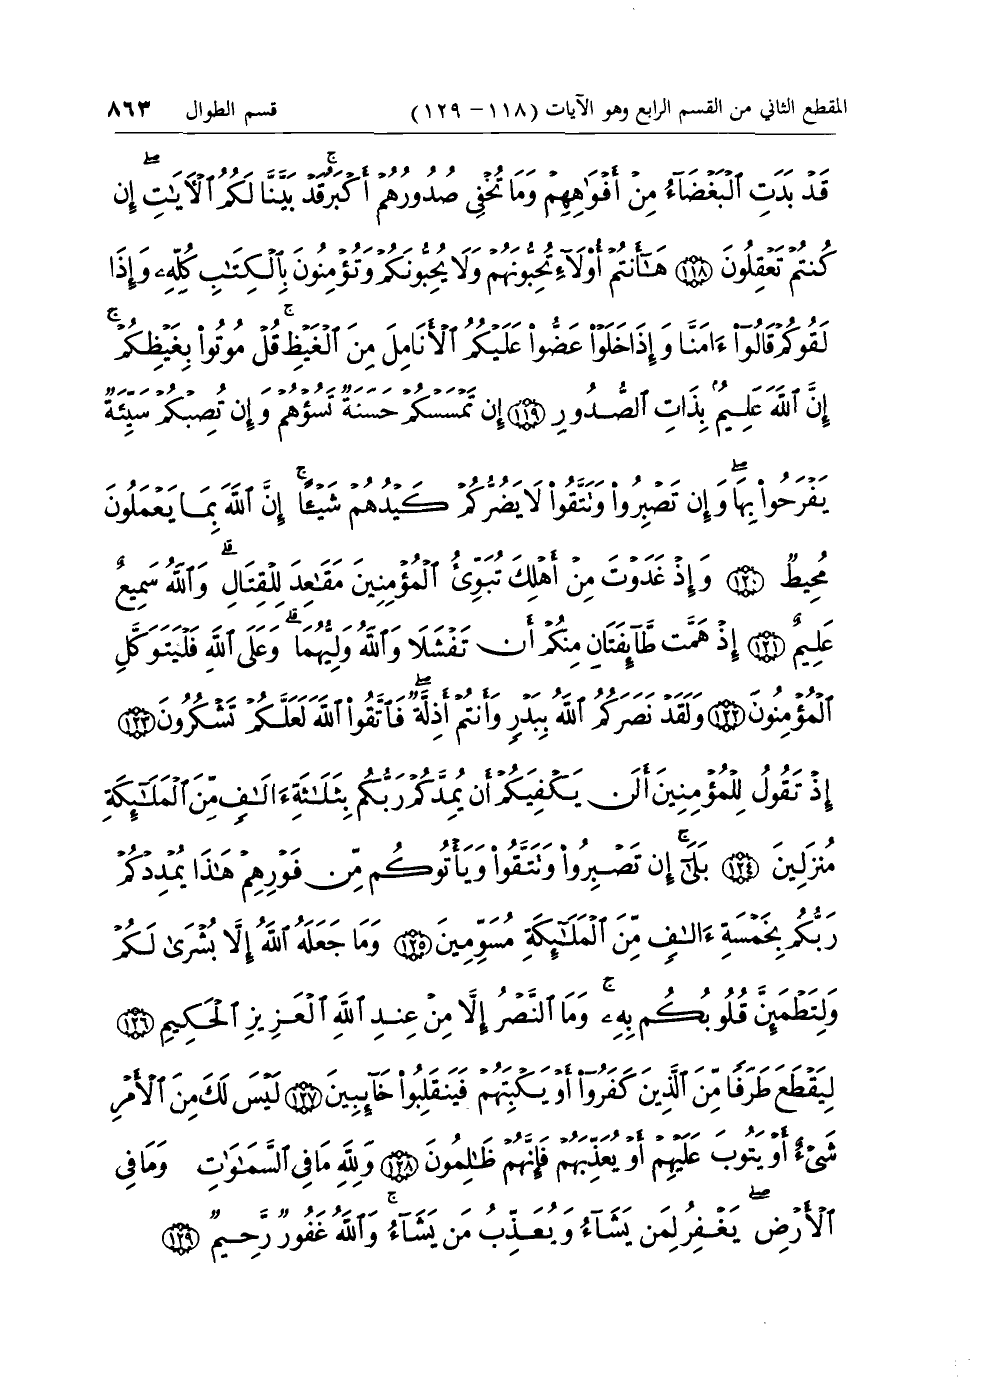 المقطع الثاني من القسم الرابع وهو الآيات (١١٨ - ١٢٩) قسم الطوال ٨٦٣
قَدْ بَدَتِ ٱلْبَغْضَآءُ مِنْ أَفْوَٰهِهِمْ وَمَا تُخْفِى صُدُورُهُمْ أَكْبَرُۚ قَدْ بَيَّنَّا لَكُمُ ٱلْأَيَٰتِۖ إِن
كُنتُمْ تَعْقِلُونَ ﴿١١٨﴾ هَٰٓأَنتُمْ أُو۟لَآءِ تُحِبُّونَهُمْ وَلَا يُحِبُّونَكُمْ وَتُؤْمِنُونَ بِٱلْكِتَٰبِ كُلِّهِۦ وَإِذَا
لَقُوكُمْ قَالُوٓا۟ ءَامَنَّا وَإِذَا خَلَوْا۟ عَضُّوا۟ عَلَيْكُمُ ٱلْأَنَامِلَ مِنَ ٱلْغَيْظِۚ قُلْ مُوتُوا۟ بِغَيْظِكُمْۗ
إِنَّ ٱللَّهَ عَلِيمٌۢ بِذَاتِ ٱلصُّدُورِ ﴿١١٩﴾ إِن تَمْسَسْكُمْ حَسَنَةٌ تَسُؤْهُمْ وَإِن تُصِبْكُمْ سَيِّئَةٌ
يَفْرَحُوا۟ بِهَاۖ وَإِن تَصْبِرُوا۟ وَتَتَّقُوا۟ لَا يَضُرُّكُمْ كَيْدُهُمْ شَيْـًٔاۗ إِنَّ ٱللَّهَ بِمَا يَعْمَلُونَ
مُحِيطٌ ﴿١٢٠﴾ وَإِذْ غَدَوْتَ مِنْ أَهْلِكَ تُبَوِّئُ ٱلْمُؤْمِنِينَ مَقَٰعِدَ لِلْقِتَالِۗ وَٱللَّهُ سَمِيعٌ
عَلِيمٌ ﴿١٢١﴾ إِذْ هَمَّت طَّآئِفَتَانِ مِنكُمْ أَن تَفْشَلَا وَٱللَّهُ وَلِيُّهُمَاۗ وَعَلَى ٱللَّهِ فَلْيَتَوَكَّلِ
ٱلْمُؤْمِنُونَ ﴿١٢٢﴾ وَلَقَدْ نَصَرَكُمُ ٱللَّهُ بِبَدْرٍ وَأَنتُمْ أَذِلَّةٌۖ فَٱتَّقُوا۟ ٱللَّهَ لَعَلَّكُمْ تَشْكُرُونَ ﴿١٢٣﴾
إِذْ تَقُولُ لِلْمُؤْمِنِينَ أَلَن يَكْفِيَكُمْ أَن يُمِدَّكُمْ رَبُّكُم بِثَلَٰثَةِ ءَالَٰفٍ مِّنَ ٱلْمَلَٰٓئِكَةِ
مُنزَلِينَ ﴿١٢٤﴾ بَلَىٰٓۚ إِن تَصْبِرُوا۟ وَتَتَّقُوا۟ وَيَأْتُوكُم مِّن فَوْرِهِمْ هَٰذَا يُمْدِدْكُمْ
رَبُّكُم بِخَمْسَةِ ءَالَٰفٍ مِّنَ ٱلْمَلَٰٓئِكَةِ مُسَوِّمِينَ ﴿١٢٥﴾ وَمَا جَعَلَهُ ٱللَّهُ إِلَّا بُشْرَىٰ لَكُمْ
وَلِتَطْمَئِنَّ قُلُوبُكُم بِهِۦۗ وَمَا ٱلنَّصْرُ إِلَّا مِنْ عِندِ ٱللَّهِ ٱلْعَزِيزِ ٱلْحَكِيمِ ﴿١٢٦﴾
لِيَقْطَعَ طَرَفًا مِّنَ ٱلَّذِينَ كَفَرُوٓا۟ أَوْ يَكْبِتَهُمْ فَيَنقَلِبُوا۟ خَآئِبِينَ ﴿١٢٧﴾ لَيْسَ لَكَ مِنَ ٱلْأَمْرِ
شَىْءٌ أَوْ يَتُوبَ عَلَيْهِمْ أَوْ يُعَذِّبَهُمْ فَإِنَّهُمْ ظَٰلِمُونَ ﴿١٢٨﴾ وَلِلَّهِ مَا فِى ٱلسَّمَٰوَٰتِ وَمَا فِى
ٱلْأَرْضِۖ يَغْفِرُ لِمَن يَشَآءُ وَيُعَذِّبُ مَن يَشَآءُۚ وَٱللَّهُ غَفُورٌ رَّحِيمٌ ﴿١٢٩﴾